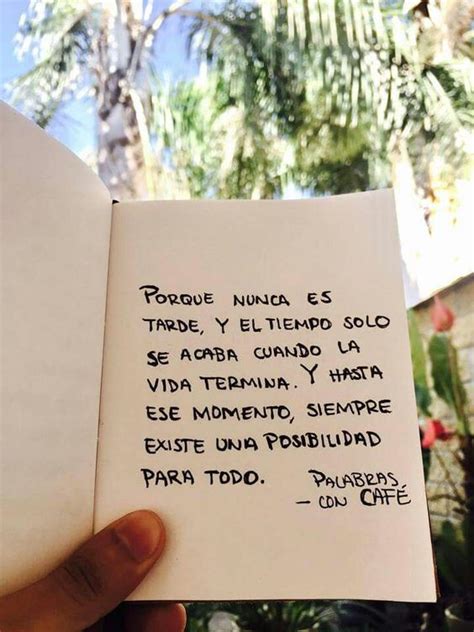 PORQUE NUNCA ES
TARDE, Y EL TIEMPO SOLO
SE ACABA CUANDO LA
VIDA TERMINA. Y HASTA
ESE MOMENTO, SIEMPRE
EXISTE UNA POSIBILIDAD
PARA TODO.
PALABRAS
- CON CAFÉ